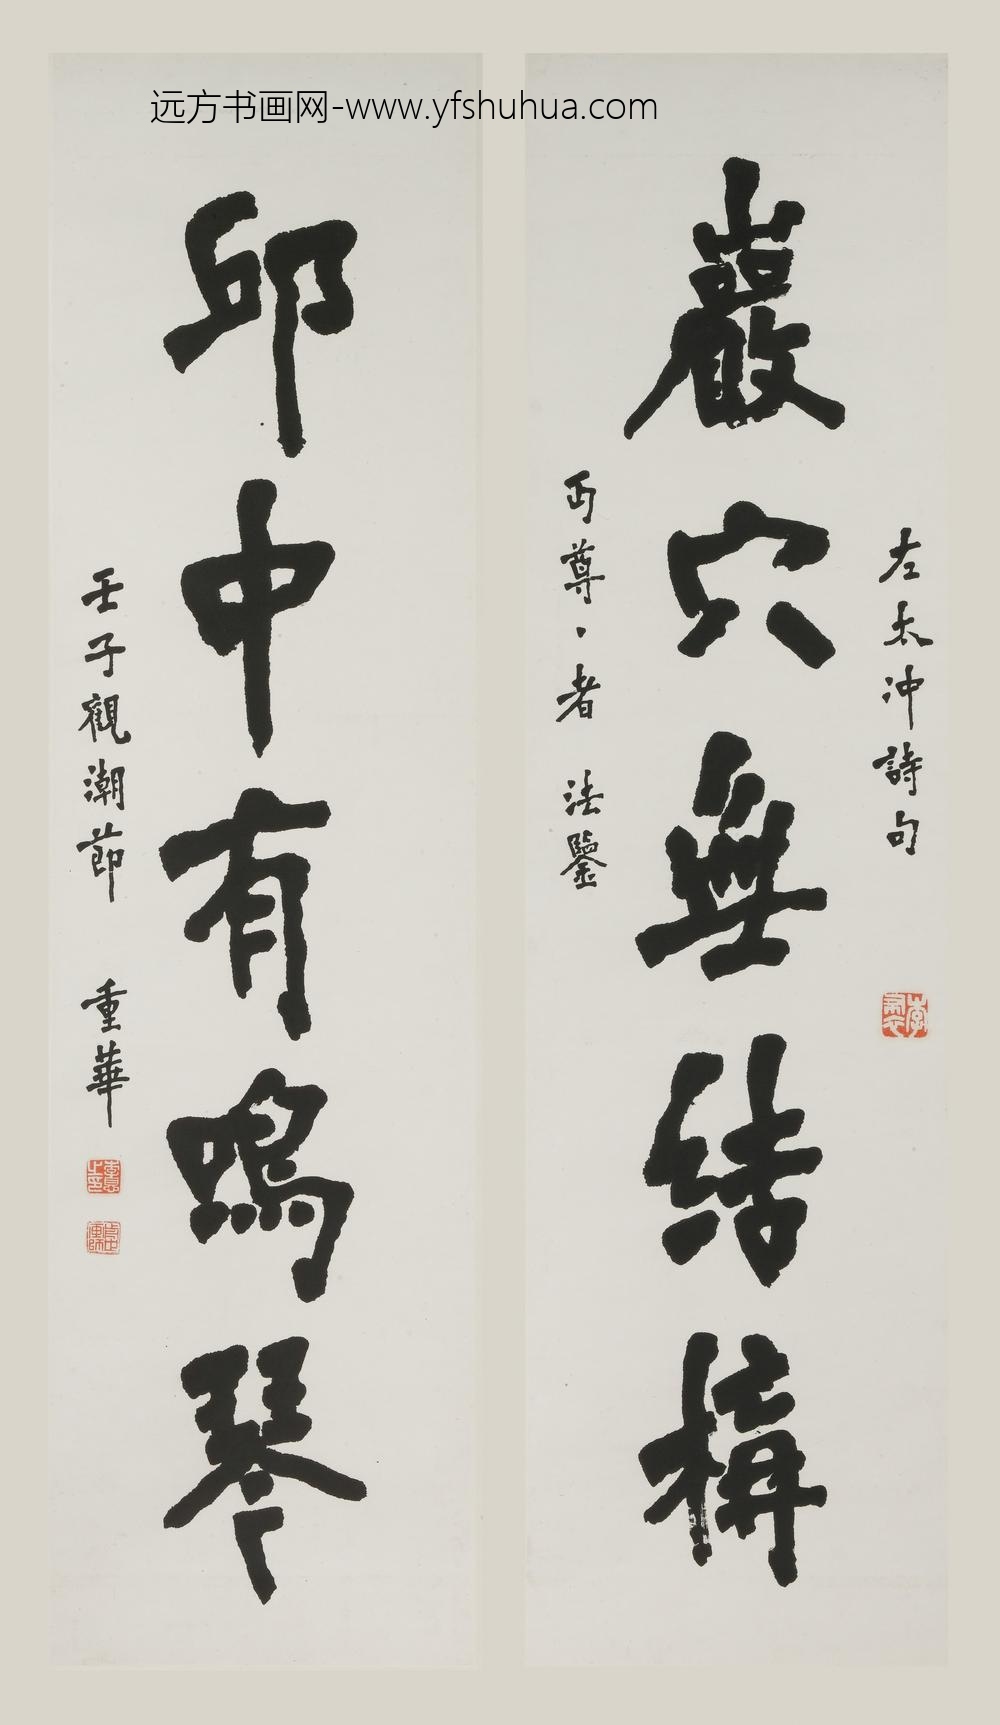 远方书画网-www.yfshuhua.com
左太冲詩句
巖穴無結構
丏尊、者 法鑒
邱中有鳴琴
壬子觀潮節 重華